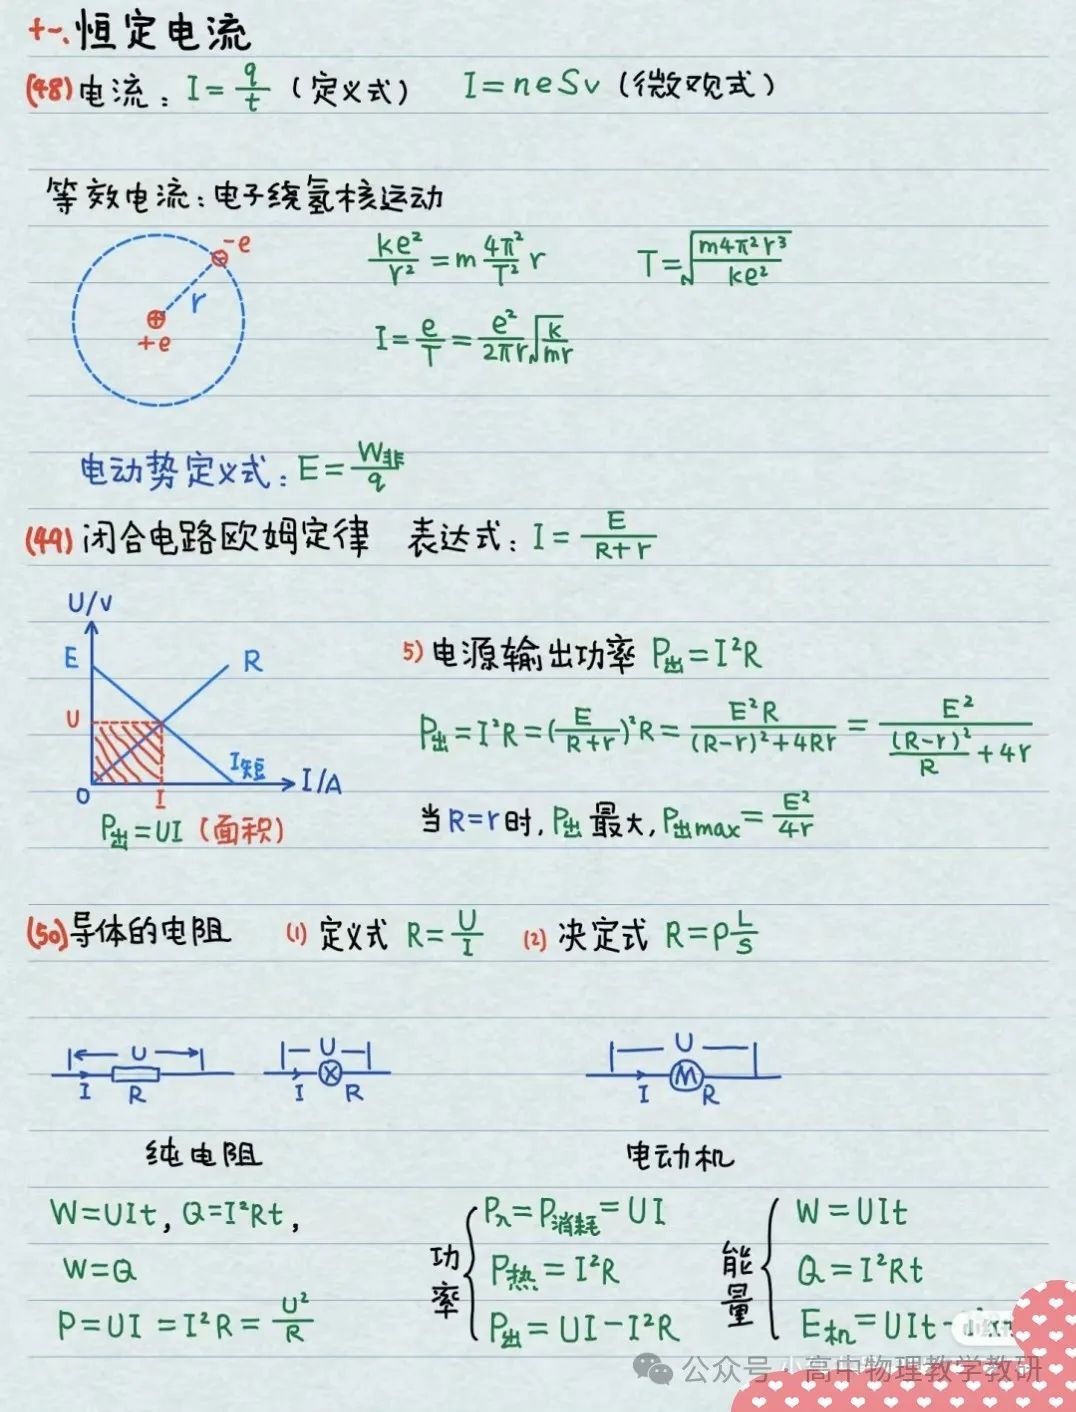 十一.恒定电流
(48)电流：I=q/t（定义式） I=neSv（微观式）
等效电流：电子绕氢核运动
-e
r
+e
ke²/r²=m 4π²/T² r T=√(m4π²r³/ke²)
I=e/T=e²/2πr √(k/mr)
电动势定义式：E=W非/q
(49)闭合电路欧姆定律 表达式：I=E/(R+r)
U/V
E R
U
I短
O I I/A
P出=UI（面积）
5)电源输出功率 P出=I²R
P出=I²R=(E/(R+r))²R=E²R/((R-r)²+4Rr)=E²/((R-r)²/R+4r)
当R=r时，P出最大，P出max=E²/4r
(50)导体的电阻 (1)定义式 R=U/I (2)决定式 R=ρL/S
U U U
I R I R I M R
纯电阻 电动机
W=UIt，Q=I²Rt，
W=Q
P=UI=I²R=U²/R
功率
P入=P消耗=UI
P热=I²R
P出=UI-I²R
能量
W=UIt
Q=I²Rt
E机=UIt-
公众号 小高中物理教学教研